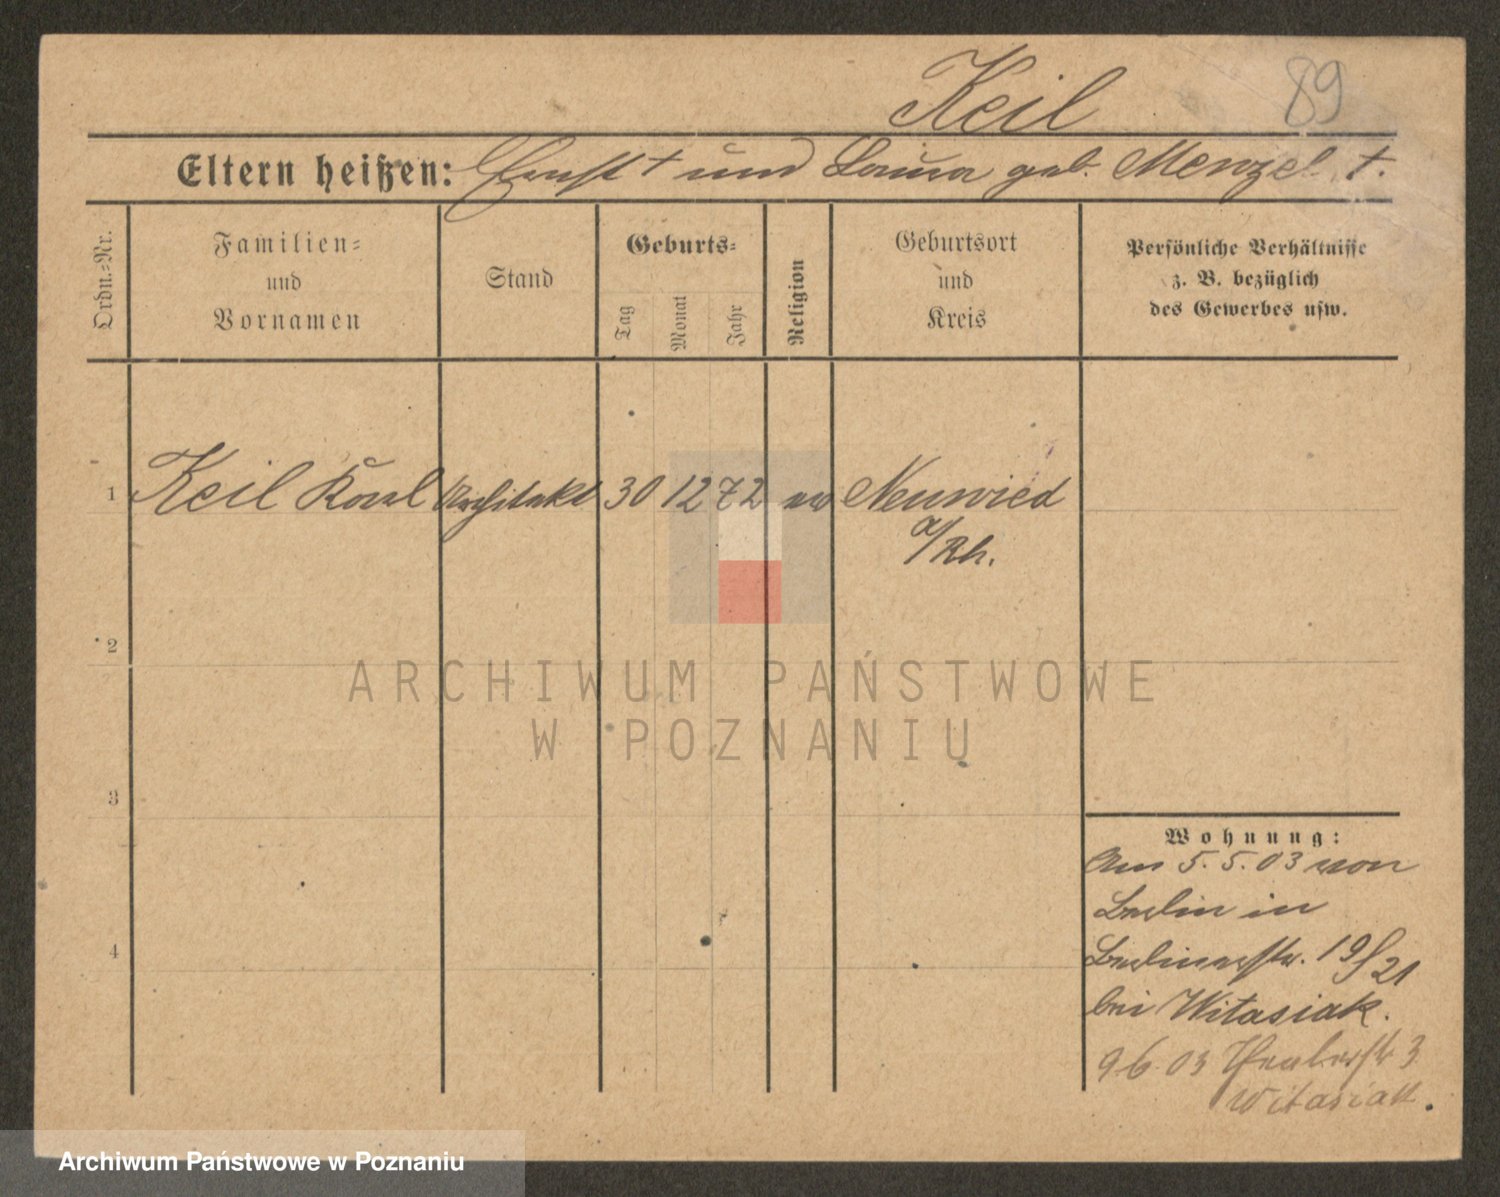 Keil 89
Eltern heißen: Ernst † und Laura geb. Menzel †.
Ordn.=Nr.
Familien=
und
Vornamen
Stand
Geburts=
Tag
Monat
Jahr
Religion
Geburtsort
und
Kreis
Persönliche Verhältnisse
z. B. bezüglich
des Gewerbes usw.
1 Keil Karl Architekt 30 12 72 ev Neuwied
a/Rh.
2
3
4
Wohnung:
Am 5.5.03 von
Berlin in
Berlinerstr. 19/21
bei Witasiak.
9.6.03 3
Witasiak.
ARCHIWUM PAŃSTWOWE
W POZNANIU
Archiwum Państwowe w Poznaniu